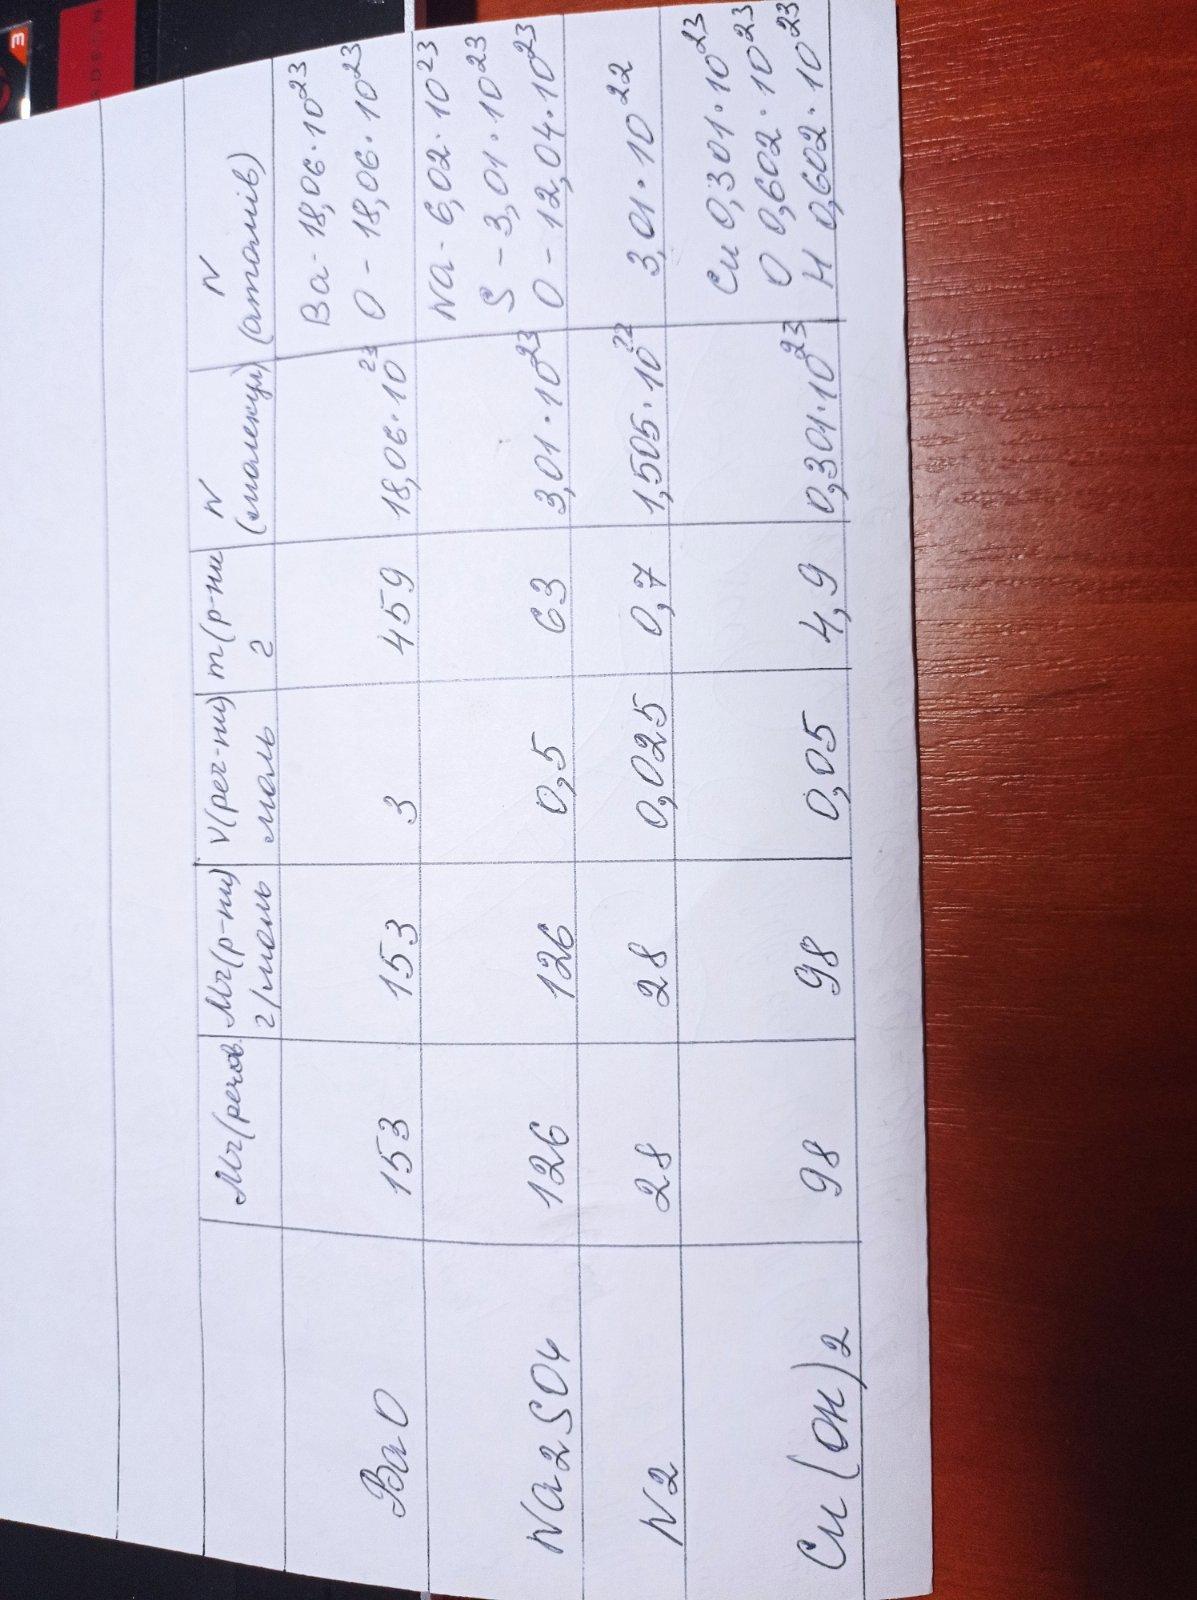 Mr(речов. Mr(р-ни) V(реч-ни) m(р-ни N N
г/моль моль г (молекул) (атомів)
BaO 153 153 3 459 18,06·10²³ Ba - 18,06·10²³
O - 18,06·10²³
Na2SO4 126 126 0,5 63 3,01·10²³ Na - 6,02·10²³
S - 3,01·10²³
O - 12,04·10²³
N2 28 28 0,025 0,7 1,505·10²² 3,01·10²²
Cu(OH)2 98 98 0,05 4,9 0,301·10²³ Cu 0,301·10²³
O 0,602·10²³
H 0,602·10²³